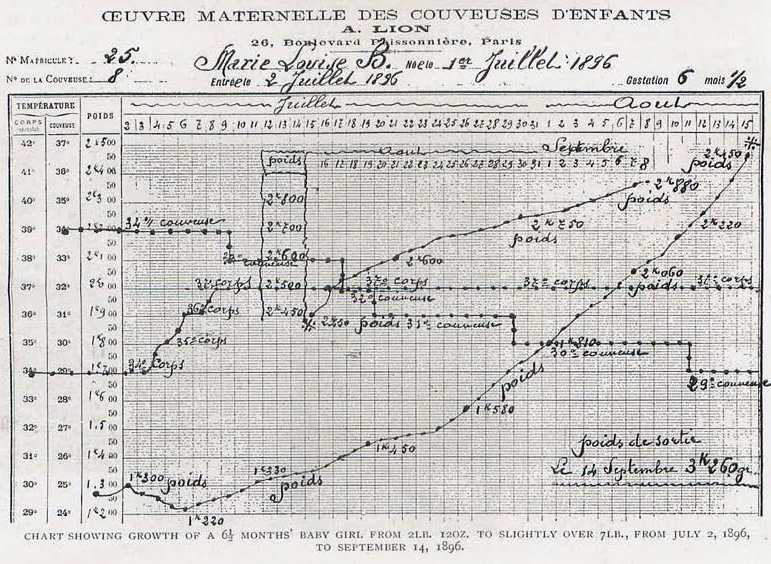 ŒUVRE MATERNELLE DES COUVEUSES D'ENFANTS
A. LION
26, Boulevard Poissonnière, Paris
Nº Matricule: 25.
Marie Louise B. Né e le 1er Juillet 1896
Nº de la Couveuse: 8
Entré e le 2 Juillet 1896
Gestation 6 mois 1/2
TEMPÉRATURE
CORPS COUVEUSE POIDS
Juillet Aout
2 3 4 5 6 7 8 9 10 11 12 13 14 15 16 17 18 19 20 21 22 23 24 25 26 27 28 29 30 31 1 2 3 4 5 6 7 8 9 10 11 12 13 14 15
42° 37° 2k500
poids Aout Septembre
16 17 18 19 20 21 22 23 24 25 26 27 28 29 30 31 1 2 3 4 5 6 7 8
2k450
poids
41° 36° 2k400
2k880
poids
40° 35° 2k3
2k800
2k750
poids
2k220
34° couveuse
39° 34°
2k700
38° 33° 2k1
2k600
2k600
2k060
poids
37° 32° 2k
37° corps
2k500
37° corps
37° corps
37° corps
32° couveuse
36° 31° 1k9
36° corps
2k450
2k450
poids
31° couveuse
35° 30° 1k8
35° corps
1k810
30° couveuse
34° 29°
34° corps
29° couveuse
33° 28° 1k6
poids
1k580
32° 27° 1k5
31° 26° 1k4
1k450
poids de sortie
30° 25° 1.3
1k300 poids
1k330
poids
Le 14 Septembre 3K260gr.
29° 24° 1k2
1k220
CHART SHOWING GROWTH OF A 6½ MONTHS' BABY GIRL FROM 2LB. 12OZ. TO SLIGHTLY OVER 7LB., FROM JULY 2, 1896,
TO SEPTEMBER 14, 1896.